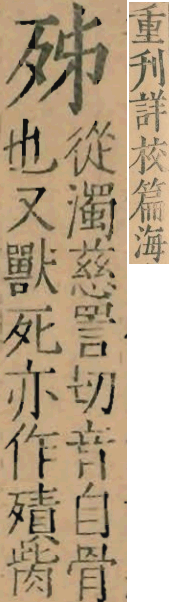 重刊詳校篇海
從濁慈詈切音自骨
也又獸死亦作㱴胔